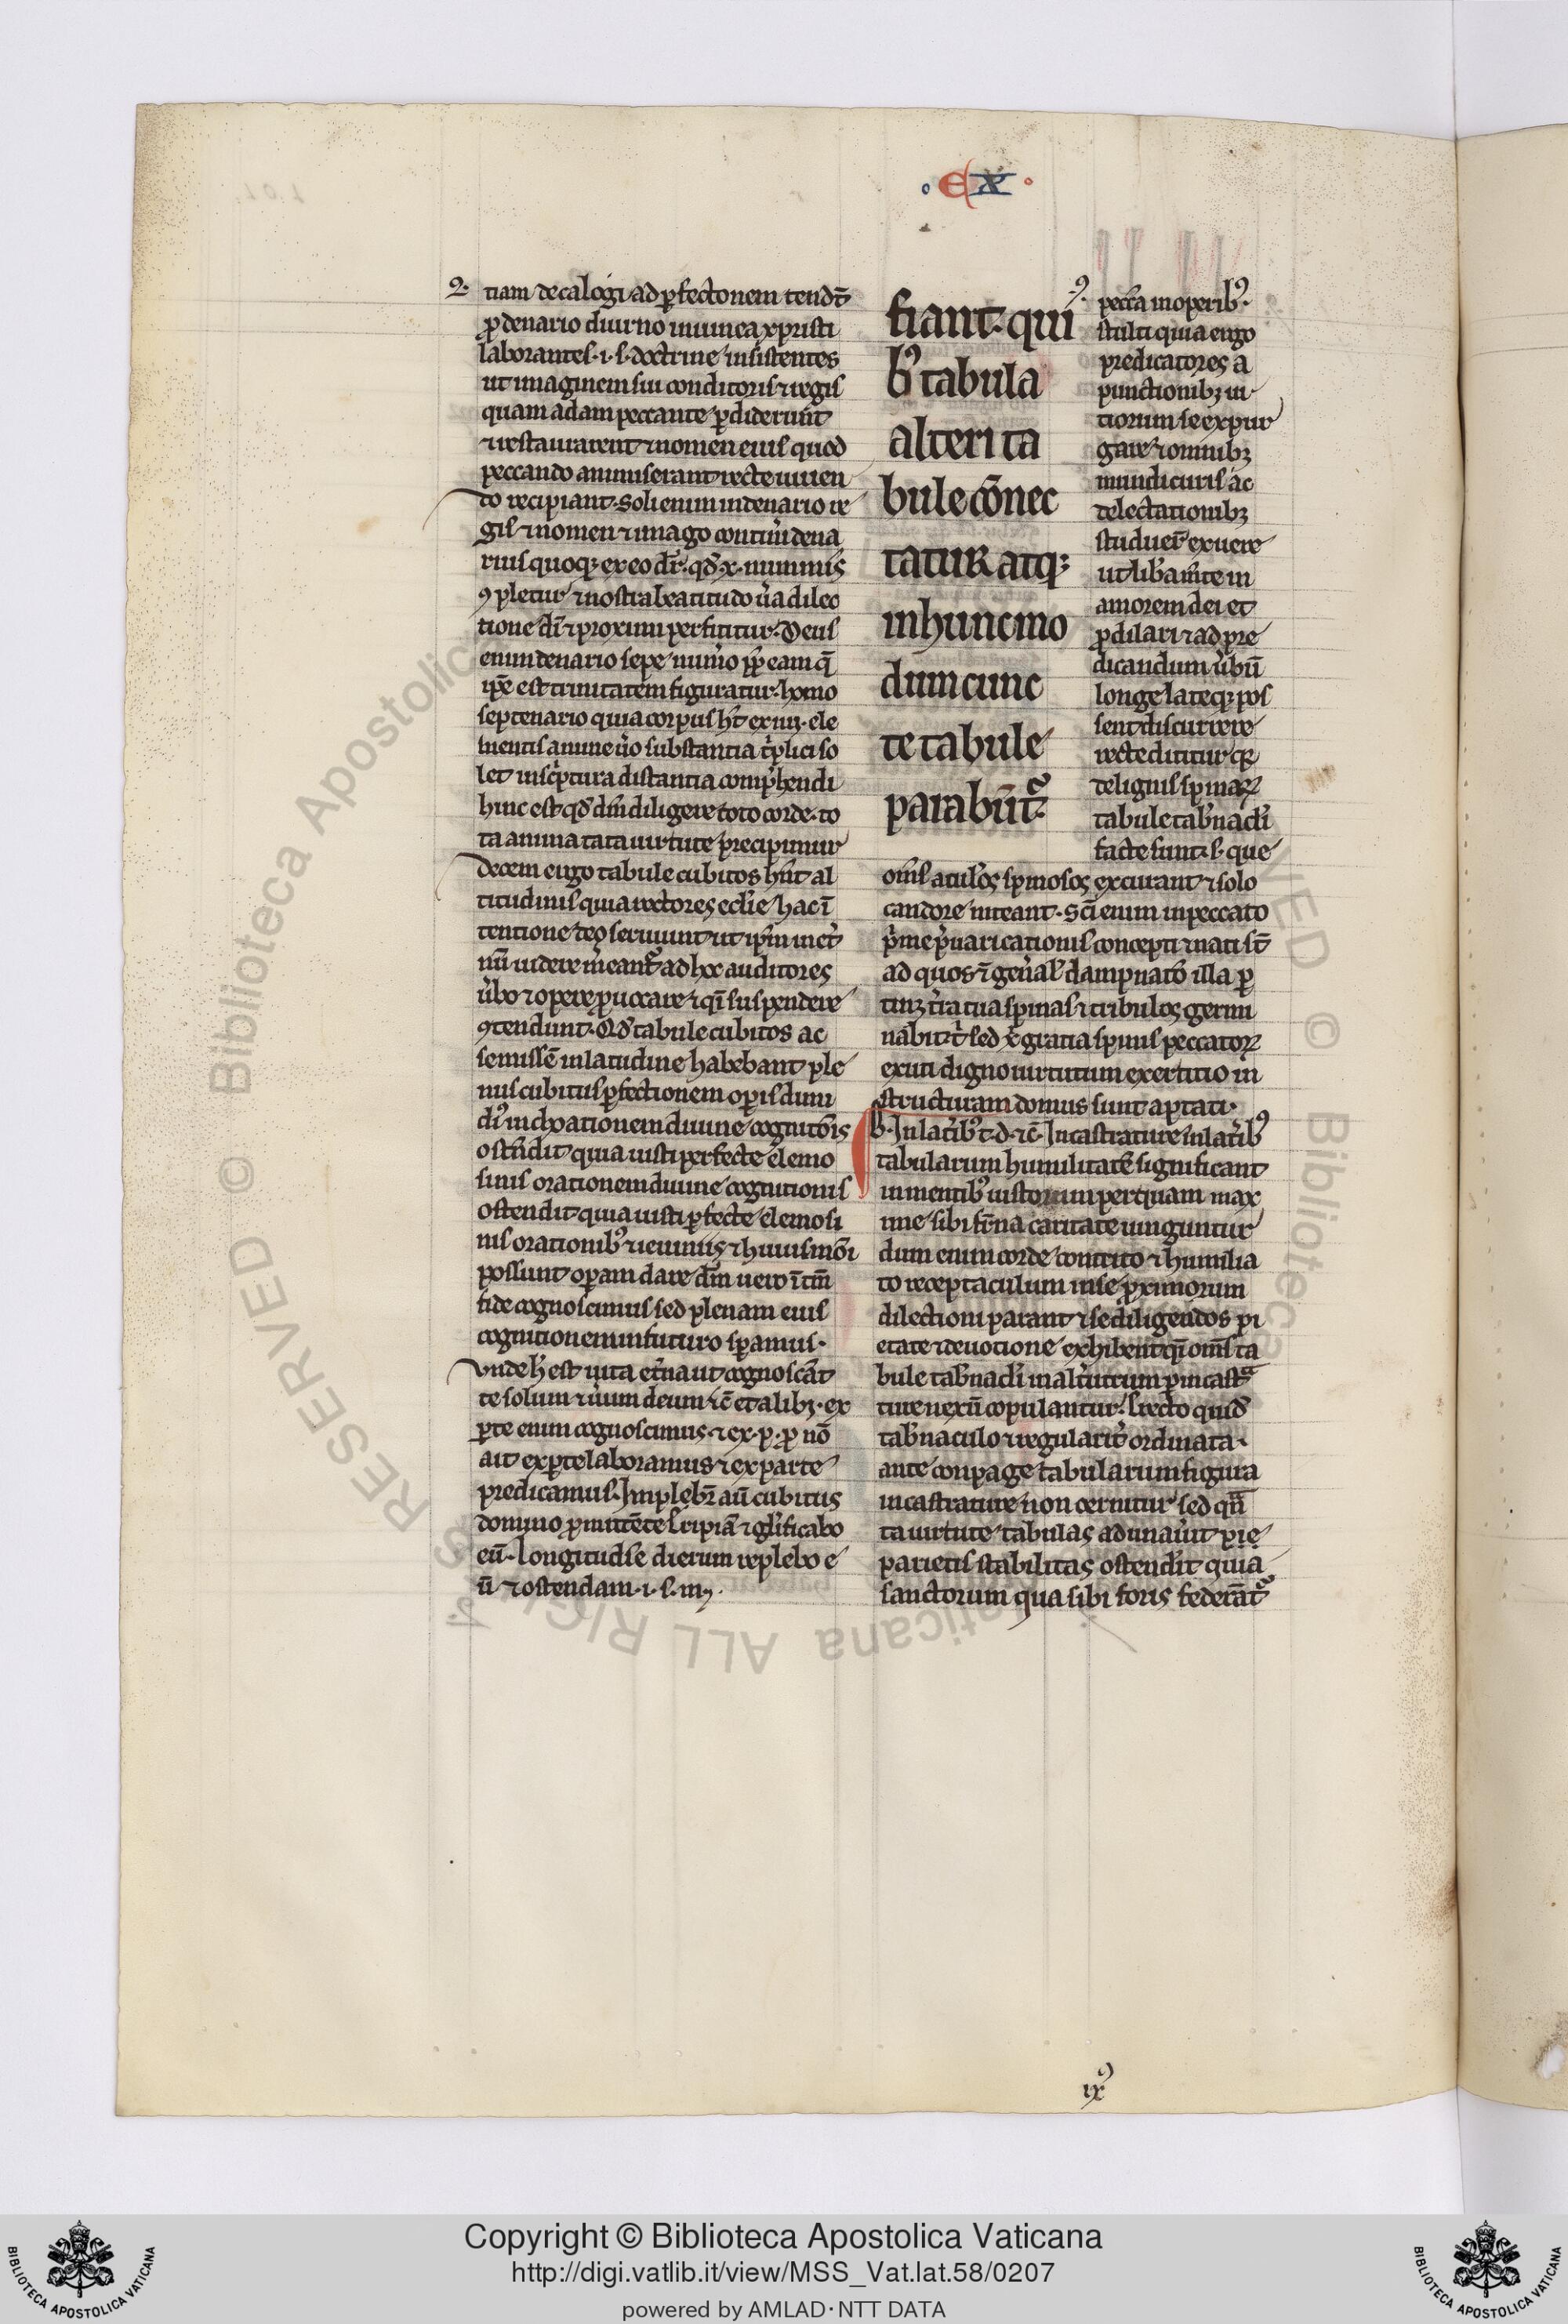 ·EX·
tiam decalogi ad ꝑfectionem tendt̄
ꝓ denario diurno in uinea xp̄risti
laborantes·i·s·doctrine insistentes
ut imaginem sui conditoris ⁊ regis
quam adam peccante ꝑdiderunt
⁊ restaurarent ⁊ nomen eius quod
peccando ammiserant recte uiuen
do recipiant. Soli enim in denario re
gis ⁊ nomen ⁊ imago contin̄ dena
rius quoqꝫ ex eo dr̄. qd̄ ·x· nummis
ꝯpletur ⁊ nostra beatitudo ūa dilec
tione dī ⁊ proximi perficitur. Deus
enim denario sepe num̄o ꝓp̄ eam q̄
ip̄e est trinitatem figuratur. homo
septenario quia corpus ht̄ ex iiii· ele
mentis anime ūo substantia t̓plici so
let in sc̓ptura distantia comp̓hendi
hinc est qd̄ dn̄m diligere toto corde. to
ta anima tata uirtute precipimur
decem ergo tabule cubitos hn̄t al
titudinis quia rectores ecclīe hac ī
tentione deo seruiunt ut ip̄m in et̓
nū uidere m̓eant᷑ ad hoc auditores
ūbo ⁊ opere ꝓuocare ⁊ q̄i suspendere
ꝯtendunt. Qd̄ tabule cubitos ac
semissē in latitudine habebant ple
nus cubitus ꝑfectionem oꝑis dimi
dī inchoationem diuine cognitōis
ostēdit quia iusti perfecte elemo
sinis orationem diuine cognitionis
ostendit quia iusti ꝑfecte elemosi
nis orationibꝰ ⁊ ieiuniis ⁊ huiusmōi
possunt oꝑam dare dm̄ uero ītm̄
fide cognoscimus sed plenam eius
cognitionem in futuro sꝑamus·
vnde h̄ est uita et̓na ut cognoscāt
te solum ⁊ ūum deum ⁊c̄ et alibꝫ·ex
ꝑte enim cognoscimus·⁊ ex·p·ꝓ nō
ait ex ꝑte laboramus ⁊ ex parte
predicamus. Implebr̄ aū cubitus
domino ꝓmittēte s ripiā ⁊ gl̓ificabo
eū·longitudīe dierum replebo e
ū ⁊ ostendam·i·s·mꝫ·
fiant· qui
bꝰ tabula
alteri ta
bule cōnec
tatur atqꝫ
in hunc mo
dum cunc
te tabule
parabūt᷑·
pecc̄a in operibꝰ·
stulti quia ergo
predicatores a
punctionibꝫ ui
tiorum se expur
gare ⁊ omnibꝫ
mundi curis ac
delectationibꝫ
studuer̄ exuere
ut lib̓ ām̄te in
amorem dei et
ꝓ dilari ⁊ ad pre
dicandum ūbū
longe lateqꝫ pos
sent discurrere
recte dicitur qꝛ
de lignis spinaꝝ
tabule tab̓nacli
facte sunt·s·que
om̄s aculeos spinosos exciuant ⁊ solo
candore niteant·Sc̄i enim in peccato
p̓me p̓uaricationis concepti ⁊ nati st̄
ad quos ī gen̓ali dampnatōe illa ꝑ
tinꝫ t̓ra tua spinas ⁊ tribulos germi
nabit t̓ sed x̄ gratia spinis peccatoꝝ
exuti digno uirtutum exercitio in
structuram domus sunt aptati·
b·In lat̓ibꝰ t·d·⁊c̄·Incastrature in lat̓ibꝰ
tabularum humilitatē significant
in mentibꝰ iustorum per quam max
ime sibi frn̄a caritate iunguntur
dum enim corde contrito ⁊ humilia
to receptaculum in se ꝓximorum
dilectioni parant ⁊ se diligendos pi
etate ⁊ deuotione exhibent q̄i om̄s ta
bule tab̓nacli in alt̓utrum ꝑ incastᷓ
ture nexū copulantur. s recto quid̄
tab̓naculo ⁊ regularit̓ ordinata·
ante conpage tabularum figura
incastrature non cernitur sed qn̄
ta uirtute tabulas adunau̓it pie
parietis stabilitas ostendit quia
sanctorum qua sibi foris federāt᷑
ixꝰ
Copyright © Biblioteca Apostolica Vaticana
http://digi.vatlib.it/view/MSS_Vat.lat.58/0207
powered by AMLAD·NTT DATA